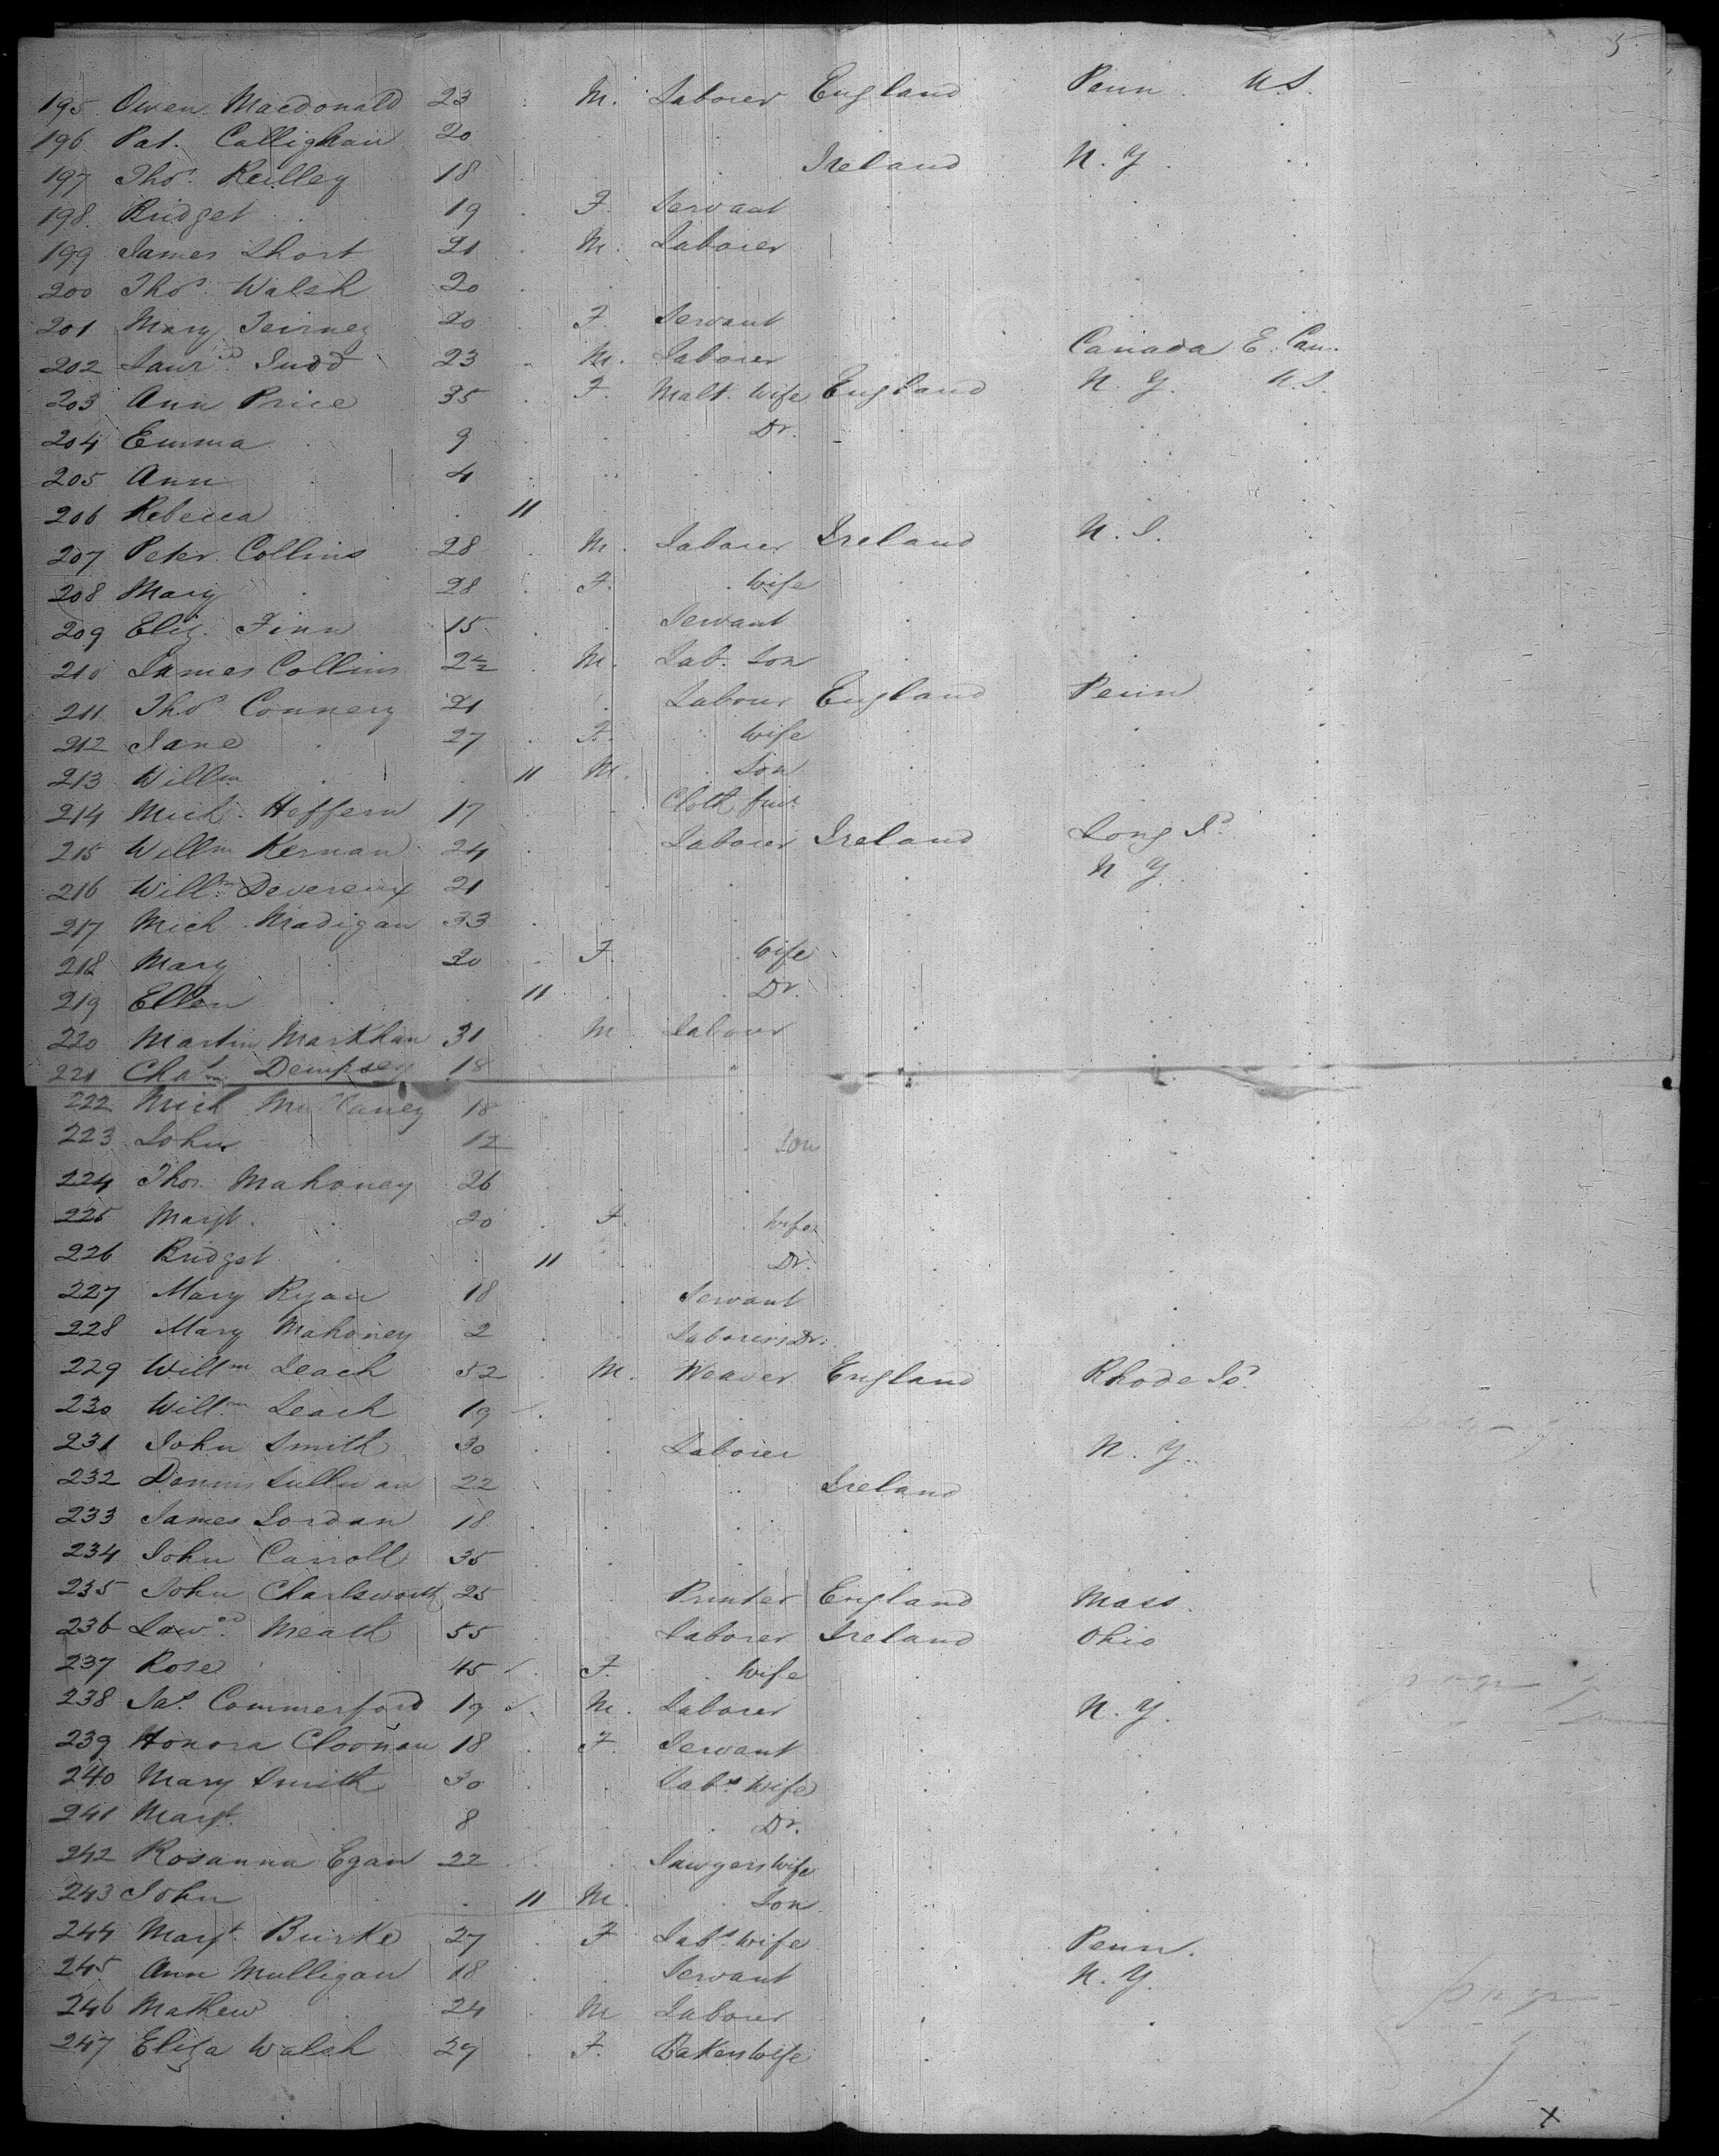 5
195 Owen Macdonald 23 M. Laborer England Penn. U.S.
196 Pat. Callighan 20
197 Thos. Reilley 18 Ireland N.Y.
198 Bridget 19 F. Servant
199 James Short 21 M. Laborer
200 Thos. Walsh 20
201 Mary Teirney 20 F. Servant
202 Judd 23 M. Laborer Canada E. Can.
203 Ann Price 35 F. Malt. Wife England N.Y. U.S.
204 Emma 9 Dr.
205 Ann 4
206 Rebecca 11
207 Peter Collins 28 M. Laborer Ireland N.J.
208 Mary 28 F. Wife
209 Eliz. Finn 15 Servant
210 James Collins M. Lab. Son
211 Thos. Connery 21 Labour England Penn
212 Jane 27 F. Wife
213 Willm 11 M. Son
214 Mich. Heffern 17 Cloth
215 Willm Kernan 24 Laborer Ireland Long Id.
216 Willm Devereux 21 N.Y.
217 Mich Madigan 33
218 Mary 30 F. Wife
219 Ellen 11 Dr.
220 Martin Markham 31 M Labour
221 Dempsey 18
222 Mich 18
223 John 12 Son
224 Thos. Mahoney 26
225 Margt. 20 F. Wife
226 Bridget 11 Dr.
227 Mary Ryan 18 Servant
228 Mary Mahoney 2 Laborers Dr.
229 Willm Leach 52 M. Weaver England Rhode Id.
230 Willm Leach 19
231 John Smith 30 Laborer N.Y.
232 Dennis Sullivan 22 Ireland
233 James Jordan 18
234 John Carroll 35
235 John Charlsworth 25 Printer England Mass.
236 Meath 55 Laborer Ireland Ohio
237 Rose 45 F. Wife
238 Jas. Commerford 19 M. Laborer N.Y.
239 Honora Cloonan 18 F. Servant
240 Mary Smith 30 Labs. Wife
241 Margt. 8 Dr.
242 Rosanna Egan 22 Sawyers Wife
243 John 11 M. Son
244 Margt. Burke 27 F Labs. Wife Penn.
245 Ann Mulligan 18 Servant N.Y.
246 Mathew 24 M Labour
247 Eliza Walsh 27 F. Bakers Wife
X